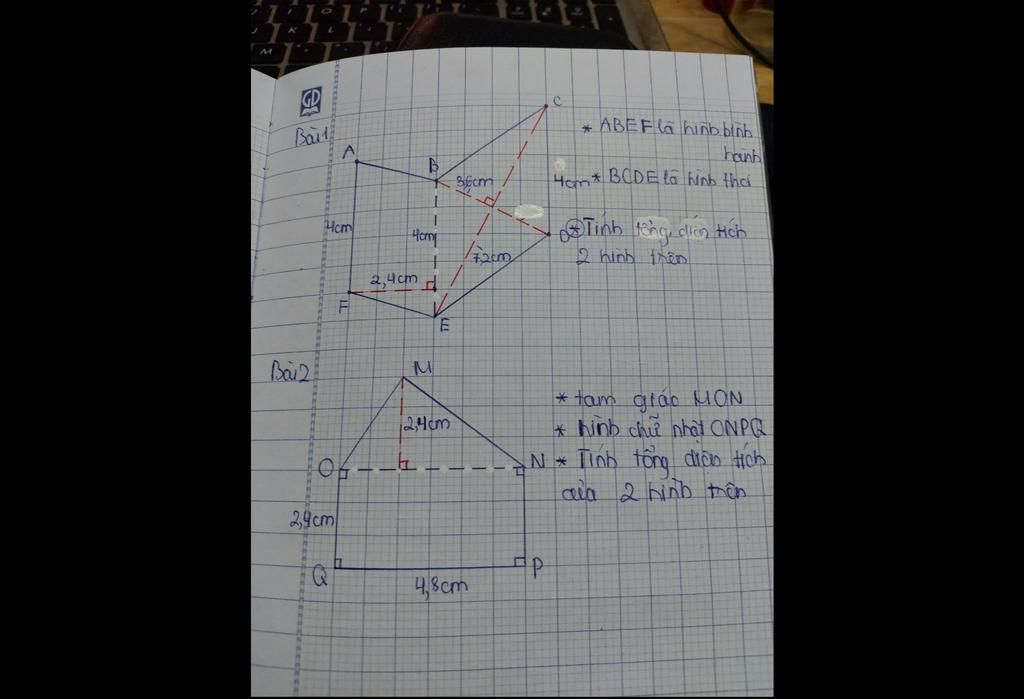 U I O P
K L
M
GD
Bài 1
C
* ABEF là hình bình
hành
A
B
3,6cm
4cm
* BCDE là hình thoi
4cm
4cm
D
* Tính tổng diện tích
2 hình trên
7,2cm
2,4cm
F
E
Bài 2
M
* tam giác MON
2,4cm
* hình chữ nhật ONPQ
O
N
* Tính tổng diện tích
của 2 hình trên
2,4cm
Q
P
4,8cm